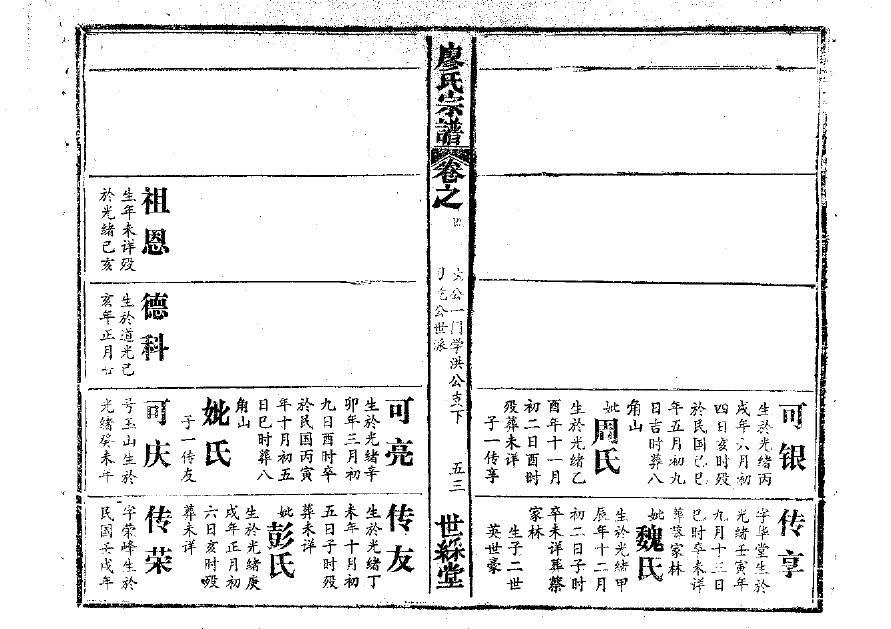 可银
生於光绪丙
戌年六月初
四日亥时殁
於民国己巳
年五月初九
日吉时葬八
角山
妣周氏
生於光绪乙
酉年十一月
初二日酉时
殁葬未详
子一传享
传享
字华堂生於
光绪壬寅年
九月十三日
巳时卒未详
葬蔡家林
妣魏氏
生於光绪甲
辰年十二月
初二日子时
卒未详葬蔡
家林
生子二世
英世豪
廖氏宗譜
卷之四
公一门学洪公支下
公世派
五三
世綵堂
祖恩
生年未详殁
於光绪己亥
德科
生於道光己
亥年正月廿
可亮
生於光绪辛
卯年三月初
九日酉时卒
於民国丙寅
年十月初五
日巳时葬八
角山
妣氏
子一传友
可庆
号玉山生於
光绪癸未年
传友
生於光绪丁
未年十月初
五日子时殁
葬未详
妣彭氏
生於光绪庚
戌年正月初
六日亥时殁
葬未详
传荣
字荣峰生於
民国壬戌年